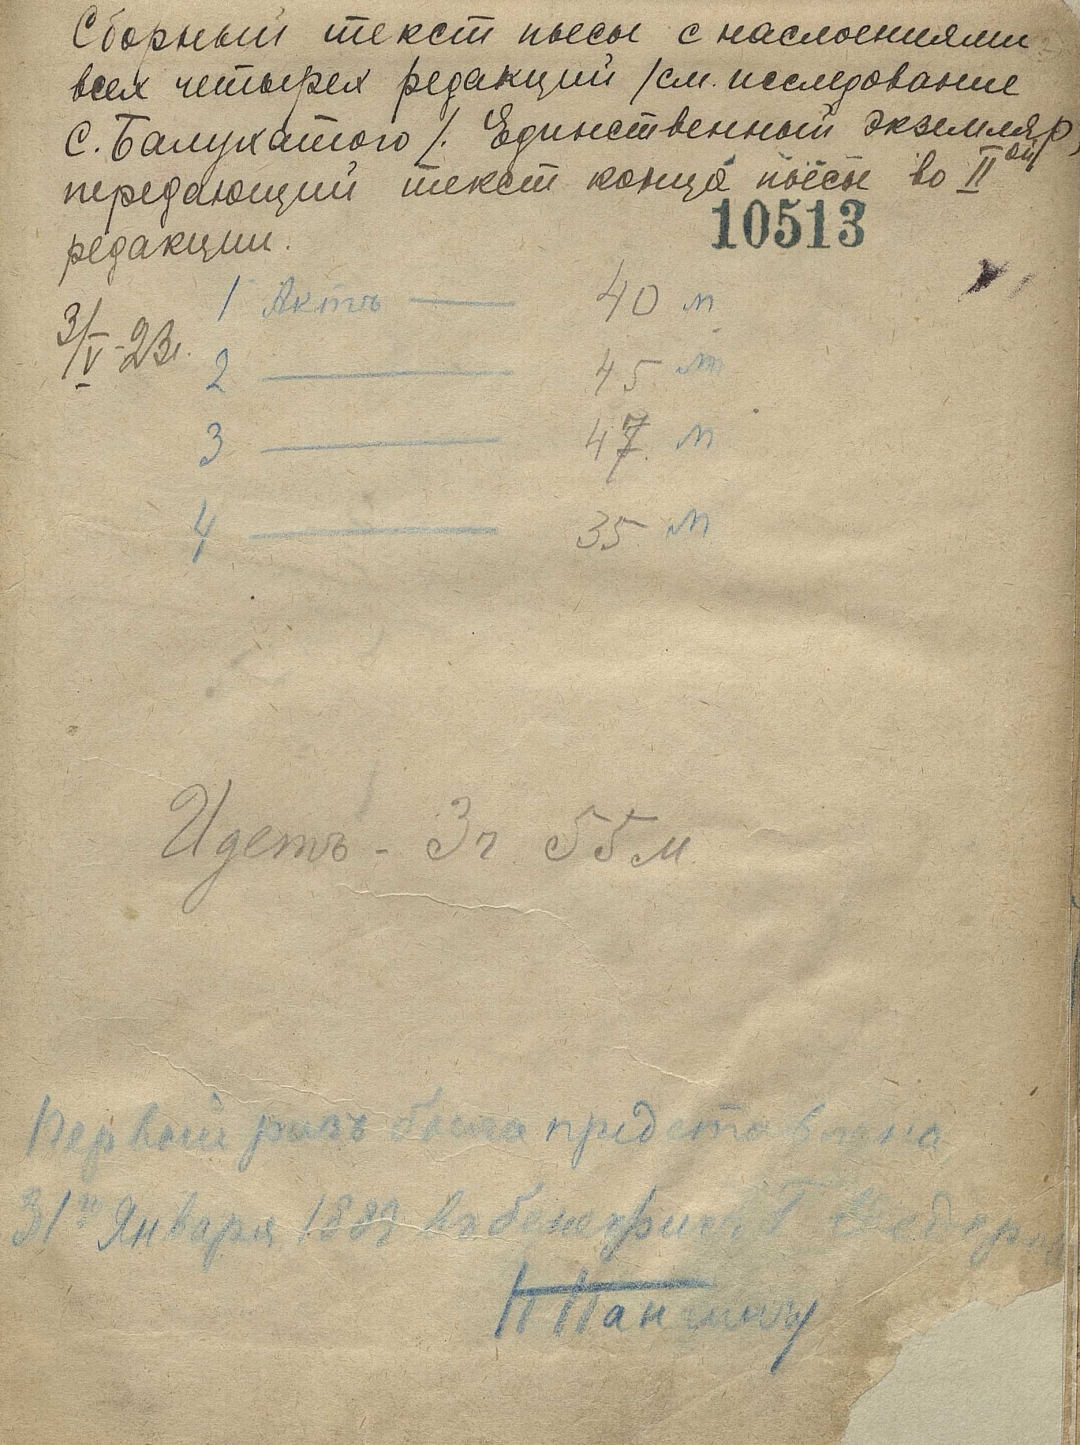 Сборный текст пьесы с наслоениями
всех четырех редакций /см. исследование
С. Балухатого/. Единственный экземпляр,
передающий текст конца пьесы во II ой
редакции.
10513
3/V-23г.
1 Актъ — 40 м
2 — 45 м
3 — 47 м
4 — 35 м
Идетъ - 3 ч 55 м
Первый разъ была представлена
31го Января 1889 въ бенефисъ Г Федоро